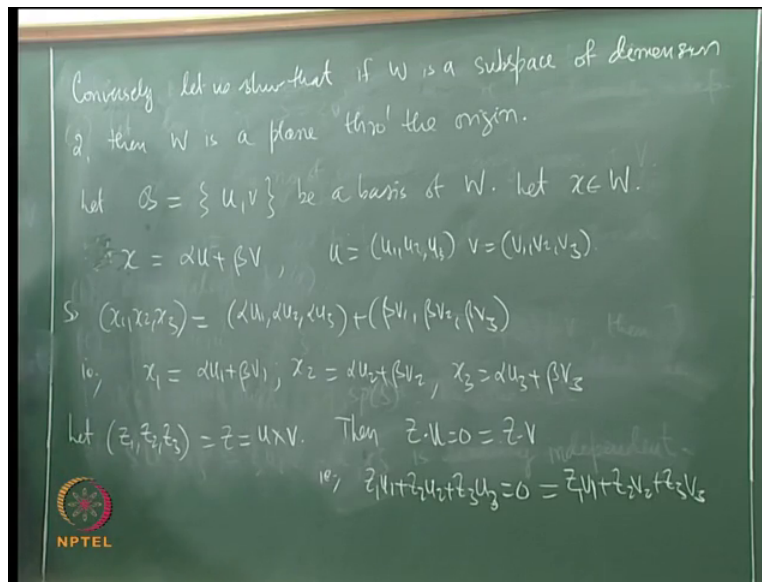 Conversely let us show that if W is a subspace of dimension
2, then W is a plane thro' the origin.
Let B = { u, v } be a basis of W. Let x ∈ W.
x = αu + βv, u = (u1, u2, u3) v = (v1, v2, v3).
So (x1, x2, x3) = (αu1, αu2, αu3) + (βv1, βv2, βv3)
ie; x1 = αu1 + βv1; x2 = αu2 + βv2, x3 = αu3 + βv3
Let (z1, z2, z3) = z = u × v. Then z·u = 0 = z·v
ie; z1u1 + z2u2 + z3u3 = 0 = z1v1 + z2v2 + z3v3
NPTEL